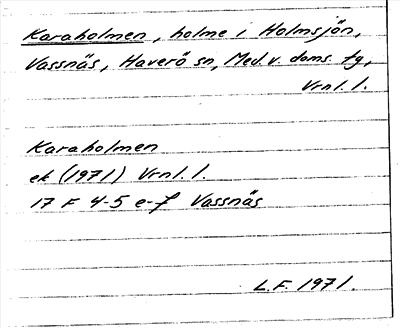 Karaholmen, holme i Holmsjön,
Vassnäs, Haverö sn, Med. v. doms. tg,
Vrnl. l.
Karaholmen
ek (1971) Vrnl. l.
17 F 4-5 e-f Vassnäs
L.F. 1971.